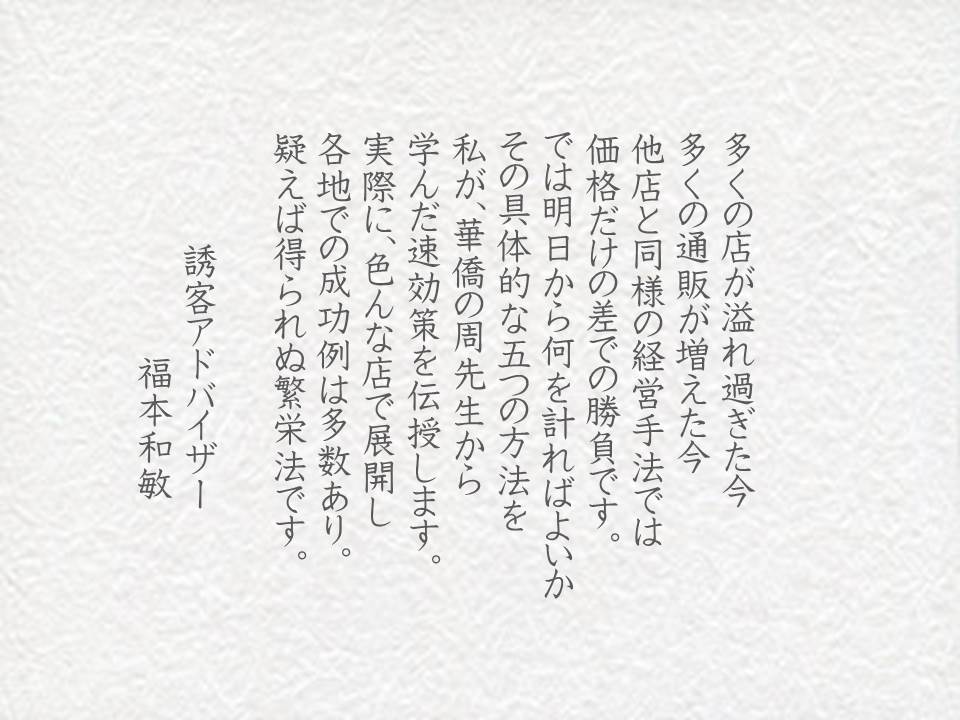 多くの店が溢れ過ぎた今
多くの通販が増えた今
他店と同様の経営手法では
価格だけの差での勝負です。
では明日から何を計ればよいか
その具体的な五つの方法を
私が、華僑の周先生から
学んだ速効策を伝授します。
実際に、色んな店で展開し
各地での成功例は多数あり。
疑えば得られぬ繁栄法です。
誘客アドバイザー
福本和敏